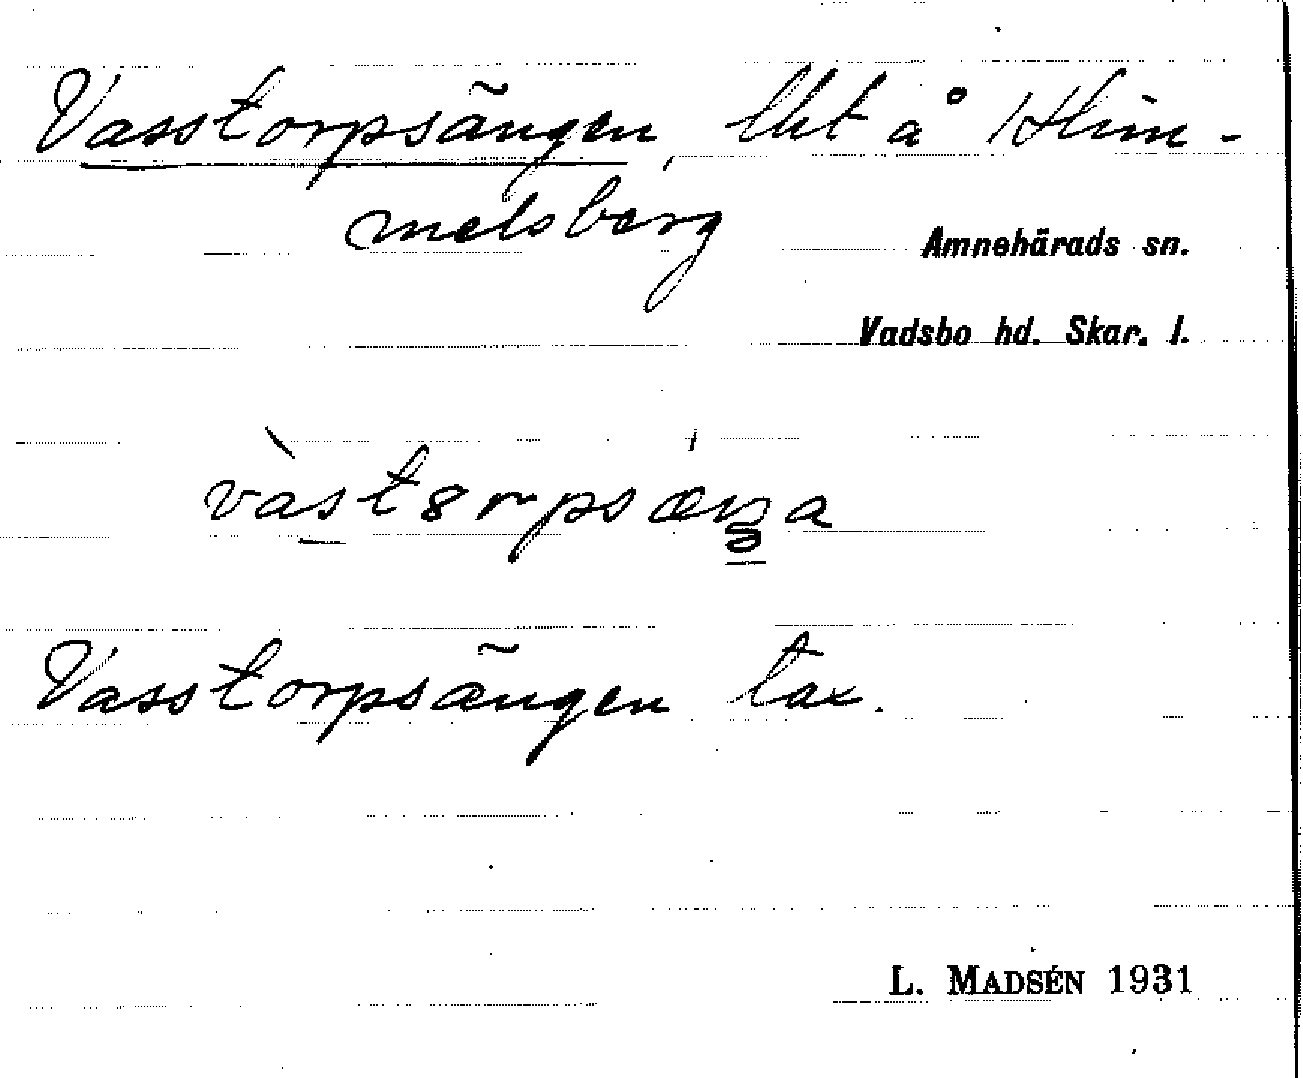 Vasstorpsängen, lht å Him-
melsberg
Amnehärads sn.
Vadsbo hd. Skar. l.
Vasstorpsängen tax.
L. MADSÉN 1931